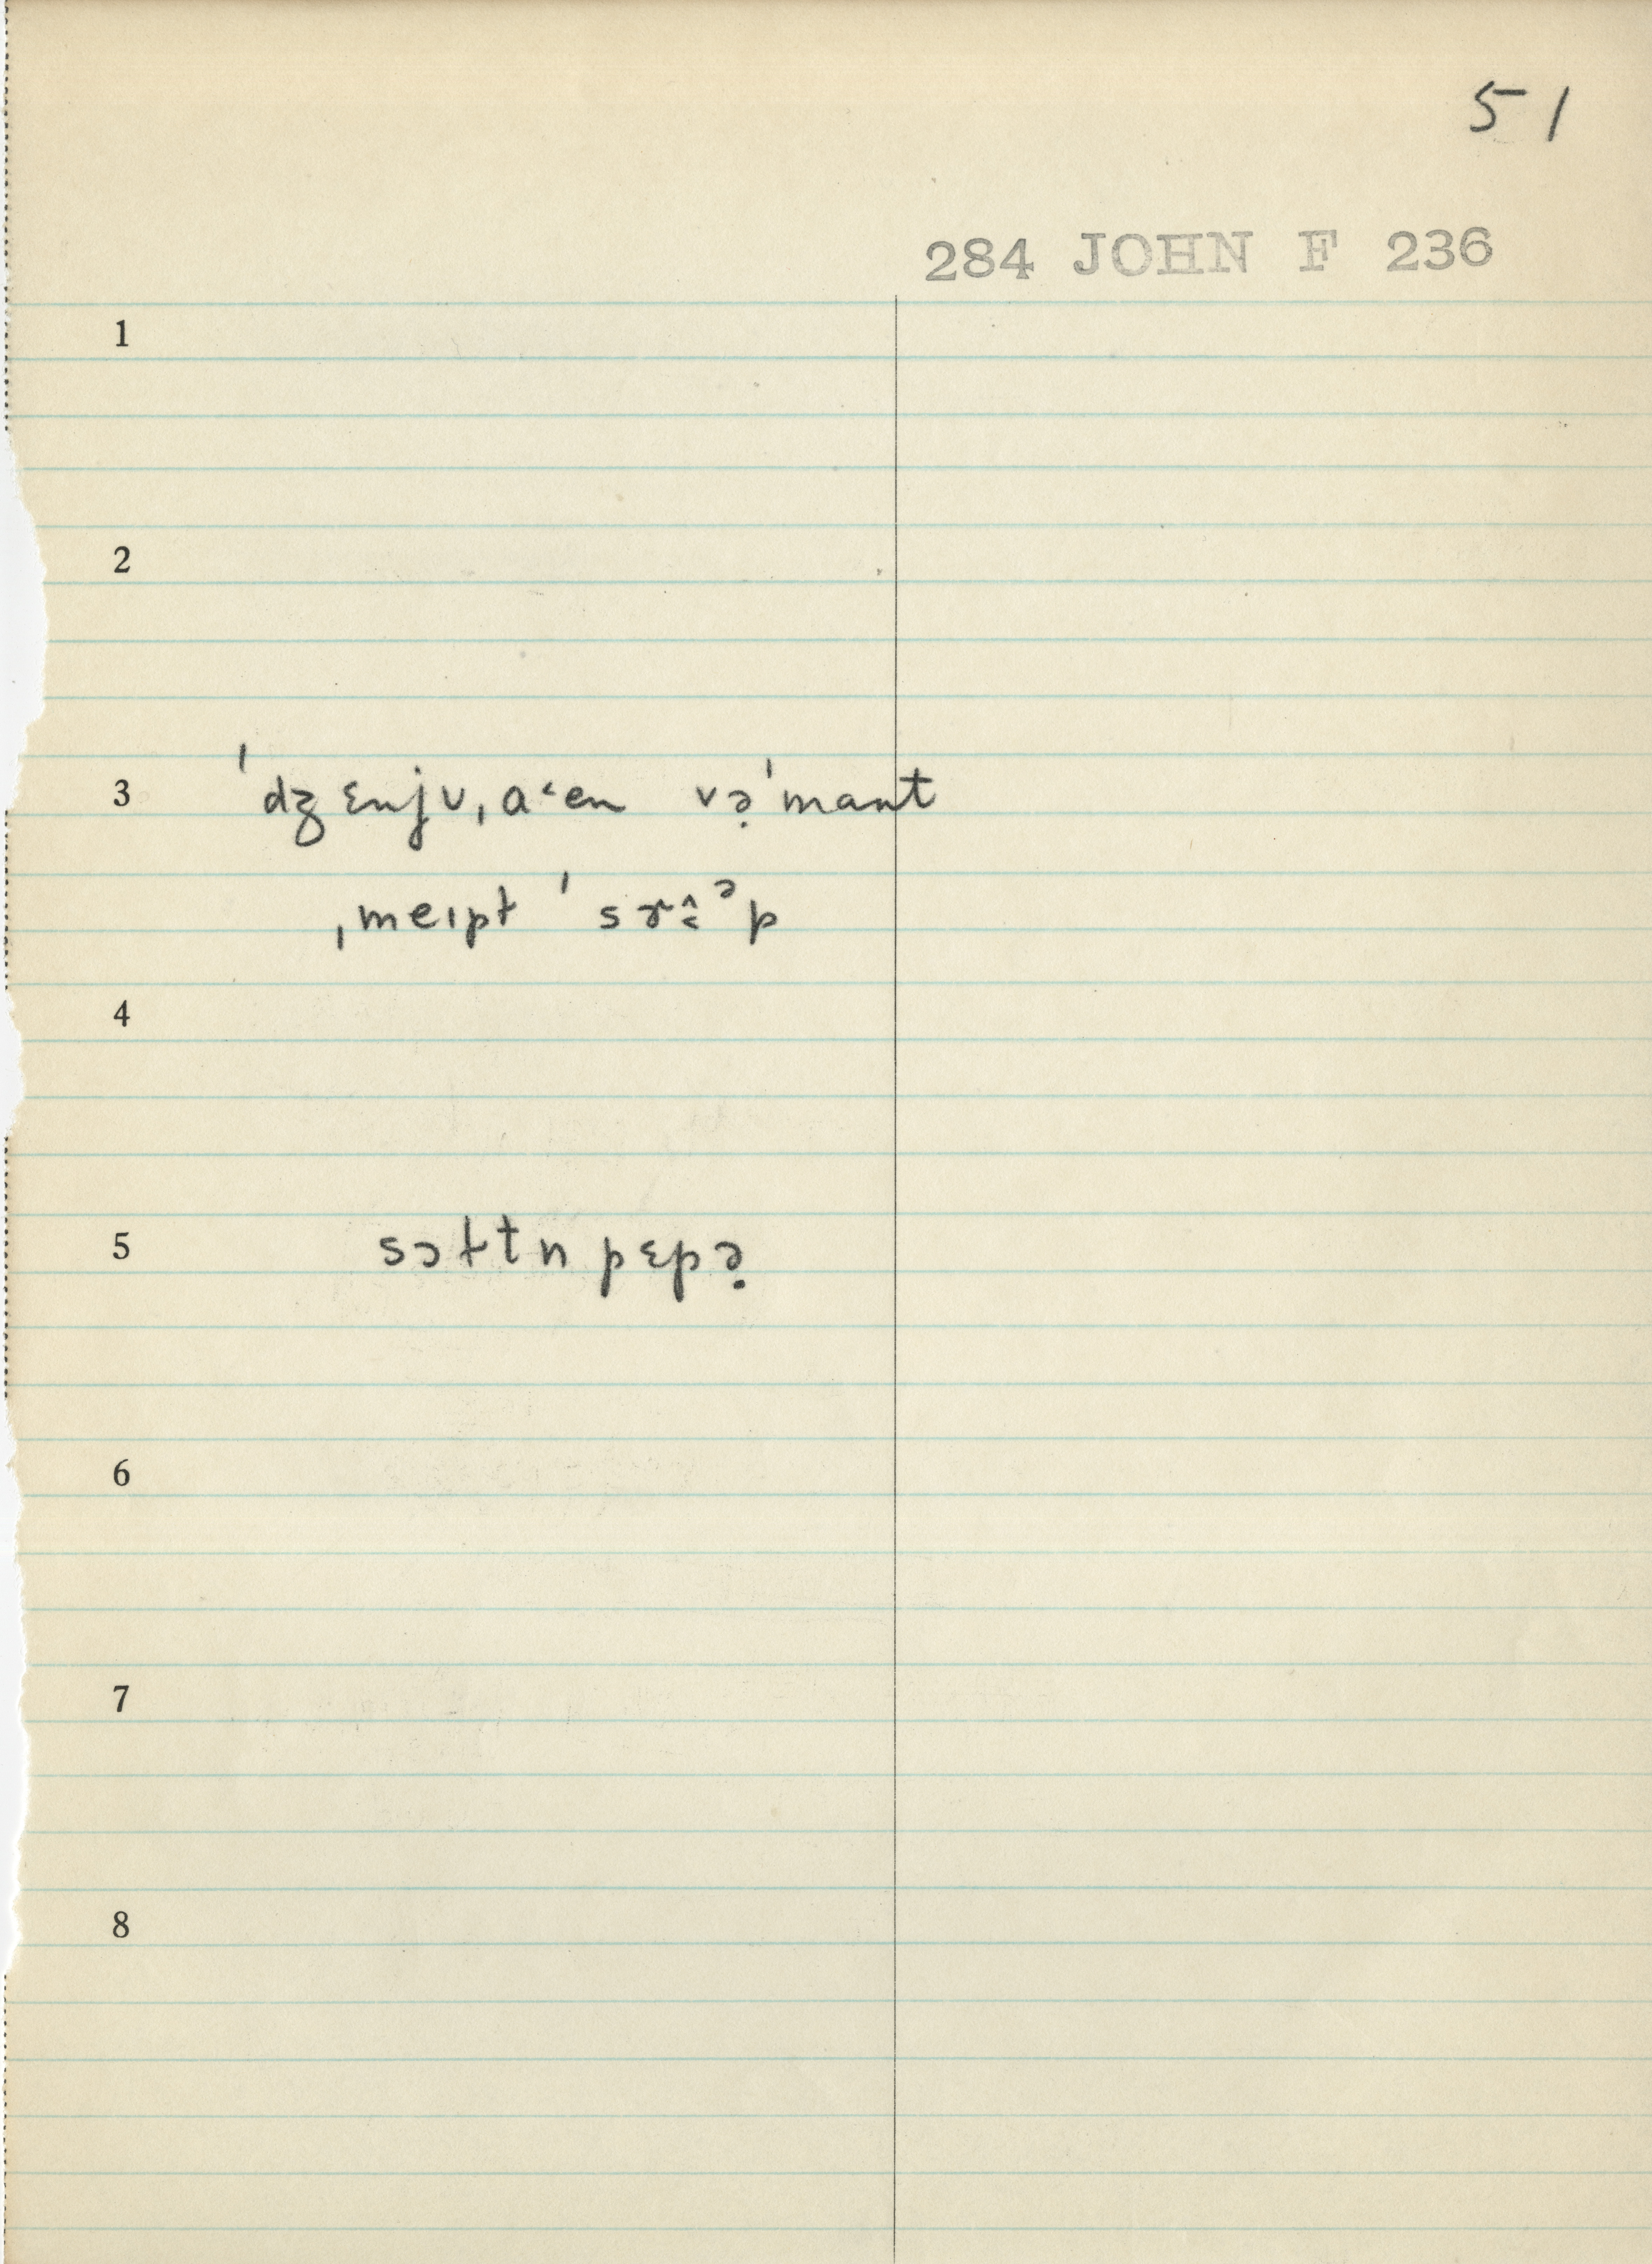 51
284 JOHN F 236
1
2
3 ˈdʒɛnjʋˌaˑen və̣ˈmant
ˌmeɪpł ˈsɤ˰̂ᵊp
4
5 sɔłtn pɛpə̣
6
7
8